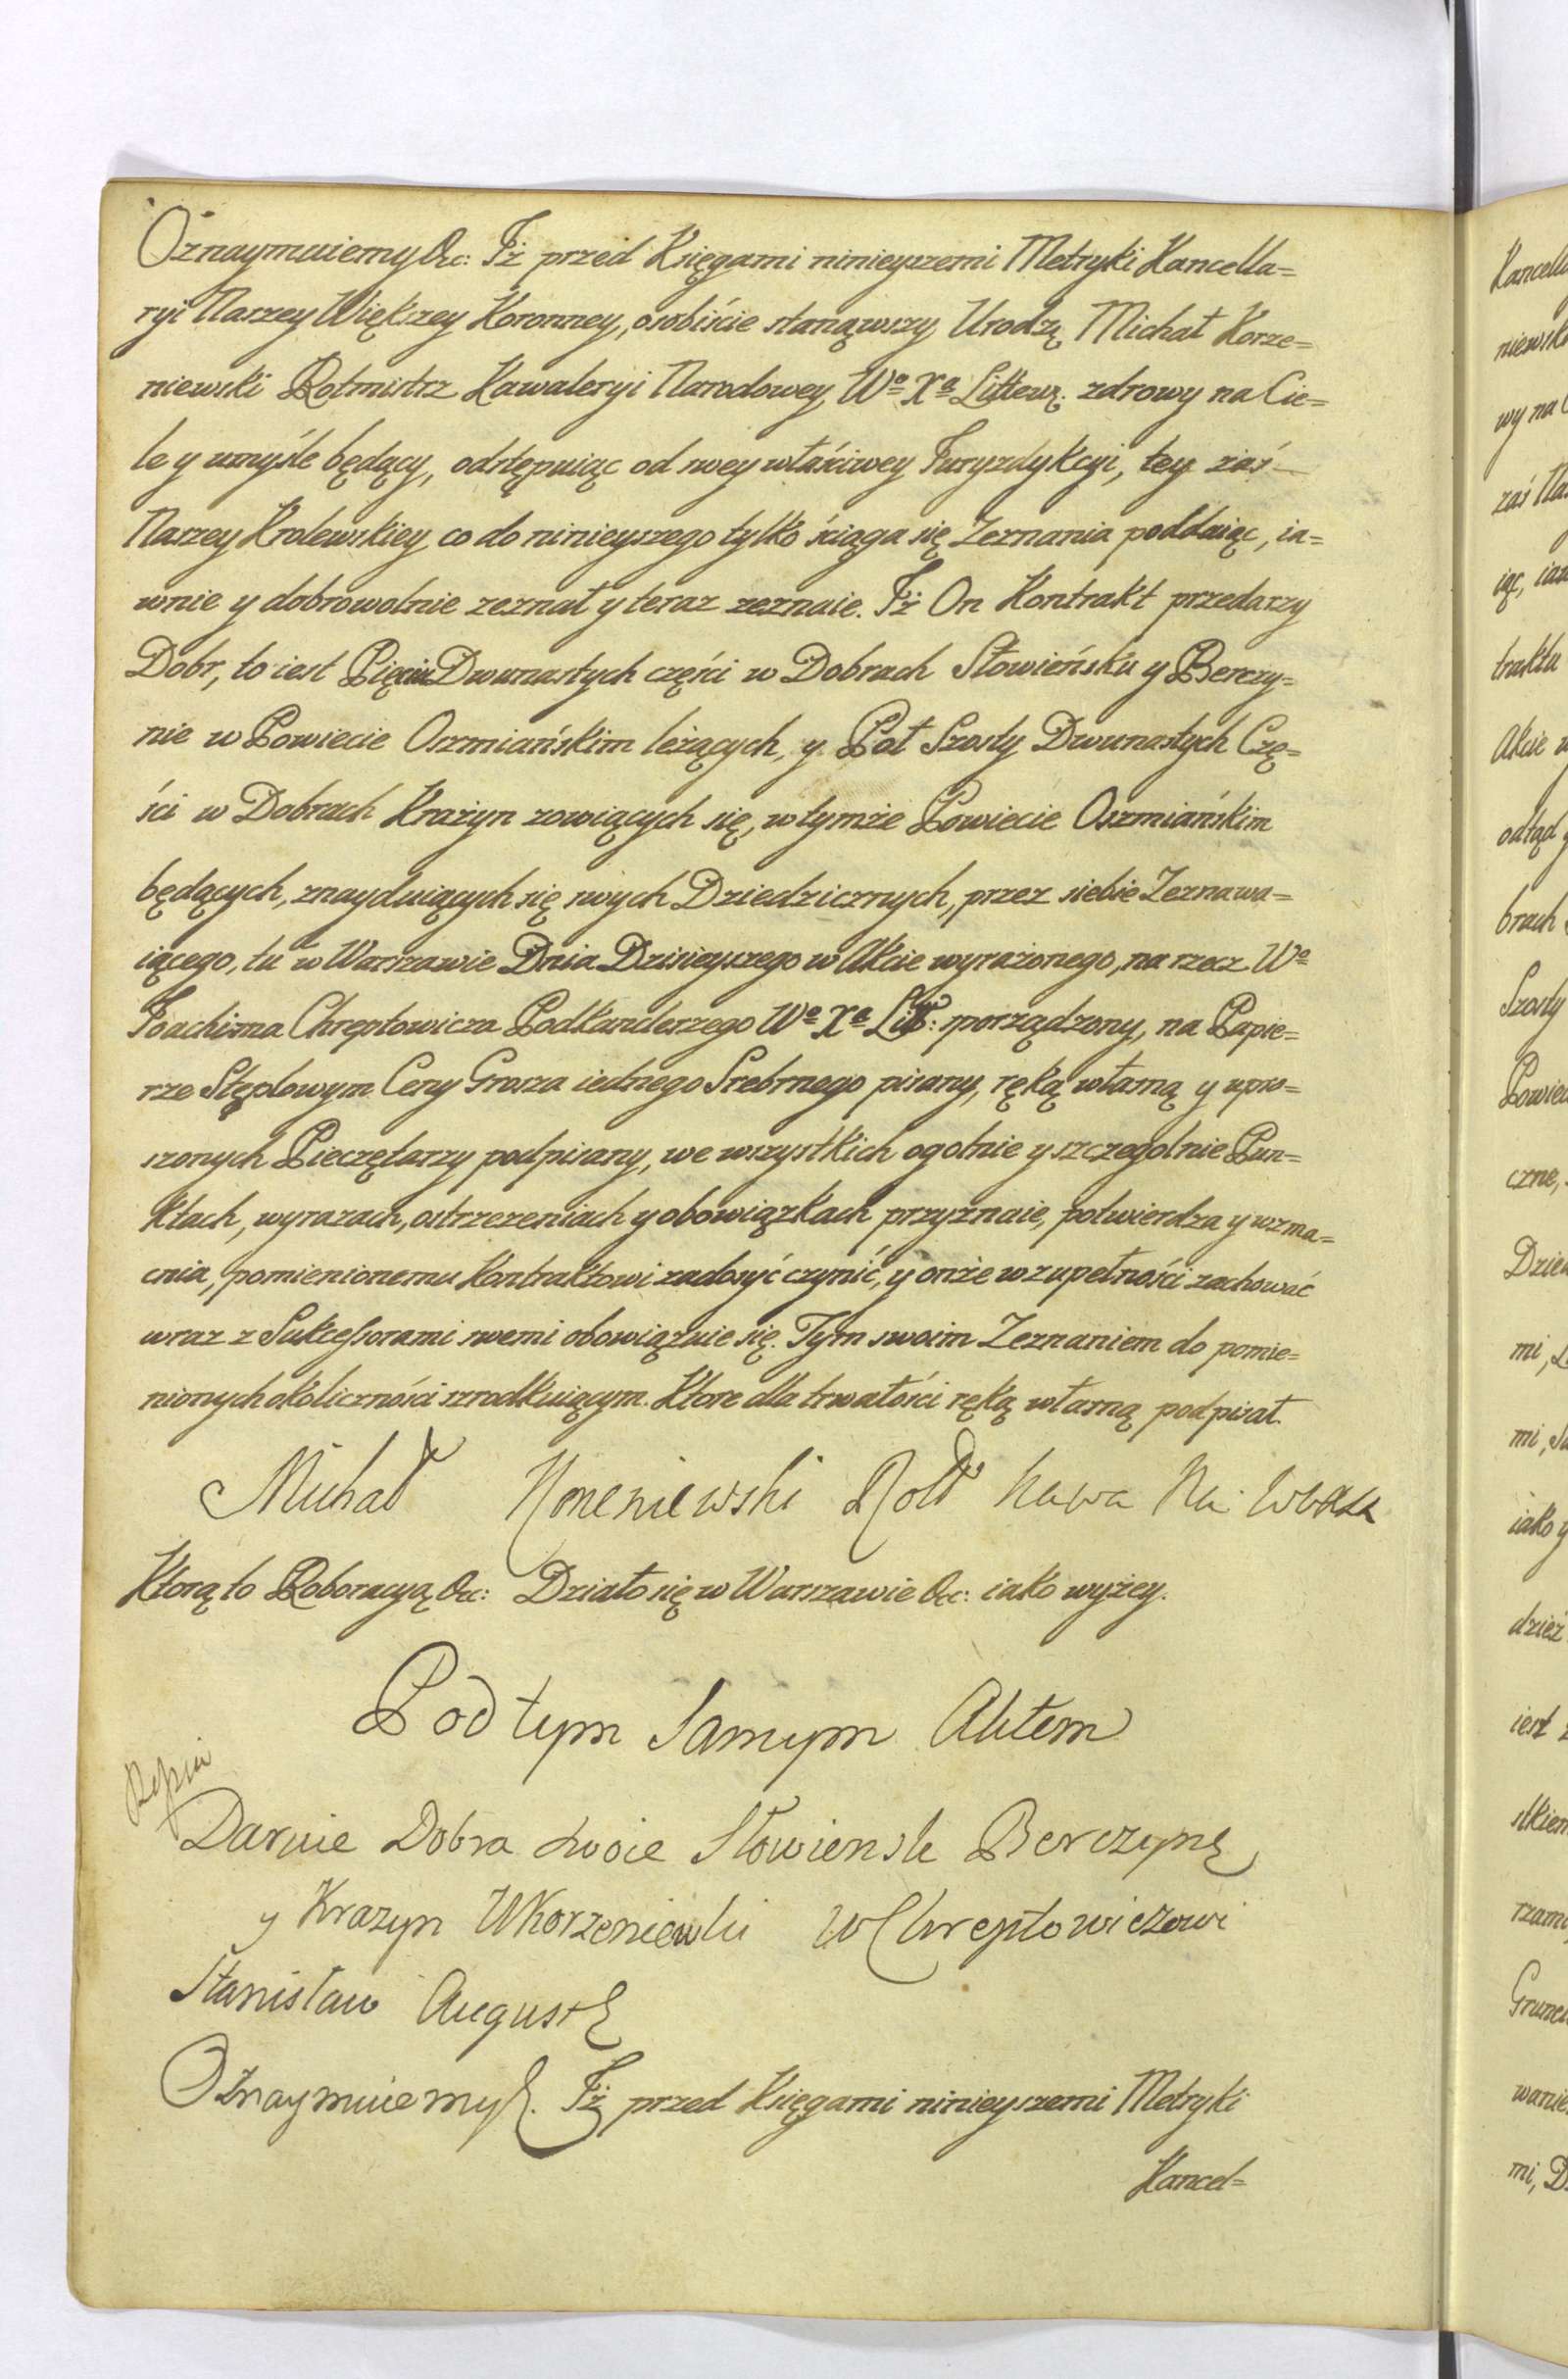 Oznaymuiemy &c: Iż przed Księgami ninieyszemi Metryki Kancella=
ryi Naszey Większey Koronney, osobiście stanąwszy Urodz. Michał Korze=
niewski Rotmistrz Kawaleryi Narodowey Wo Xa Littew. zdrowy na Cie=
le y umyśle będący, odstępuiąc od swey właściwey Juryzdykcyi, tey zaś
Naszey Krolewskiey co do ninieyszego tylko ściąga się Zeznania poddaiąc, ia=
wnie y dobrowolnie zeznał y teraz zeznaie. Iż On Kontrakt przedarzy
Dobr, to iest Pięciu Dwunastych części w Dobrach Słowieńsku y Berezy=
nie w Powiecie Oszmiańskim leżących, y Poł Szosty Dwunastych Czę=
ści w Dobrach Krażyn zowiących się, w tymże Powiecie Oszmiańskim
będących, znayduiących się swych Dziedzicznych, przez siebie Zeznawa=
iącego, tu w Warszawie Dnia Dzisieyszego w Akcie wyrażonego, na rzecz Wo
Joachima Chreptowicza Podkanclerzego Wo Xa Litt: sporządzony, na Papie=
rze Stęplowym Ceny Grosza iednego Srebrnego pisany, ręką własną y upro=
szonych Pieczętarzy podpisany, we wszystkich ogolnie y szczegolnie Pun=
ktach, wyrazach, ostrzezeniach y obowiązkach przyznaie, potwierdza y wzma=
cnia, pomienionemu Kontraktowi zadosyć czynić, y onże w zupełności zachować
wraz z Sukcessorami swemi obowiązuie się. Tym swoim Zeznaniem do pomie=
nionych okoliczności srzodkuiącym. Ktore dla trwałości ręką własną podpisał.
Michał Koreniewski Rott Kawa Na.
Ktorą to Roboracyą &c: Działo się w Warszawie &c: iako wyżey.
Pod tym Samym Aktem
Daruie Dobra swoie Słowiensk Berezynę
y Krazyn W Korzeniewski W Chreptowiczowi
Stanisław August &
Oznaymuiemy &. Iż przed Księgami ninieyszemi Metryki
Kancel=